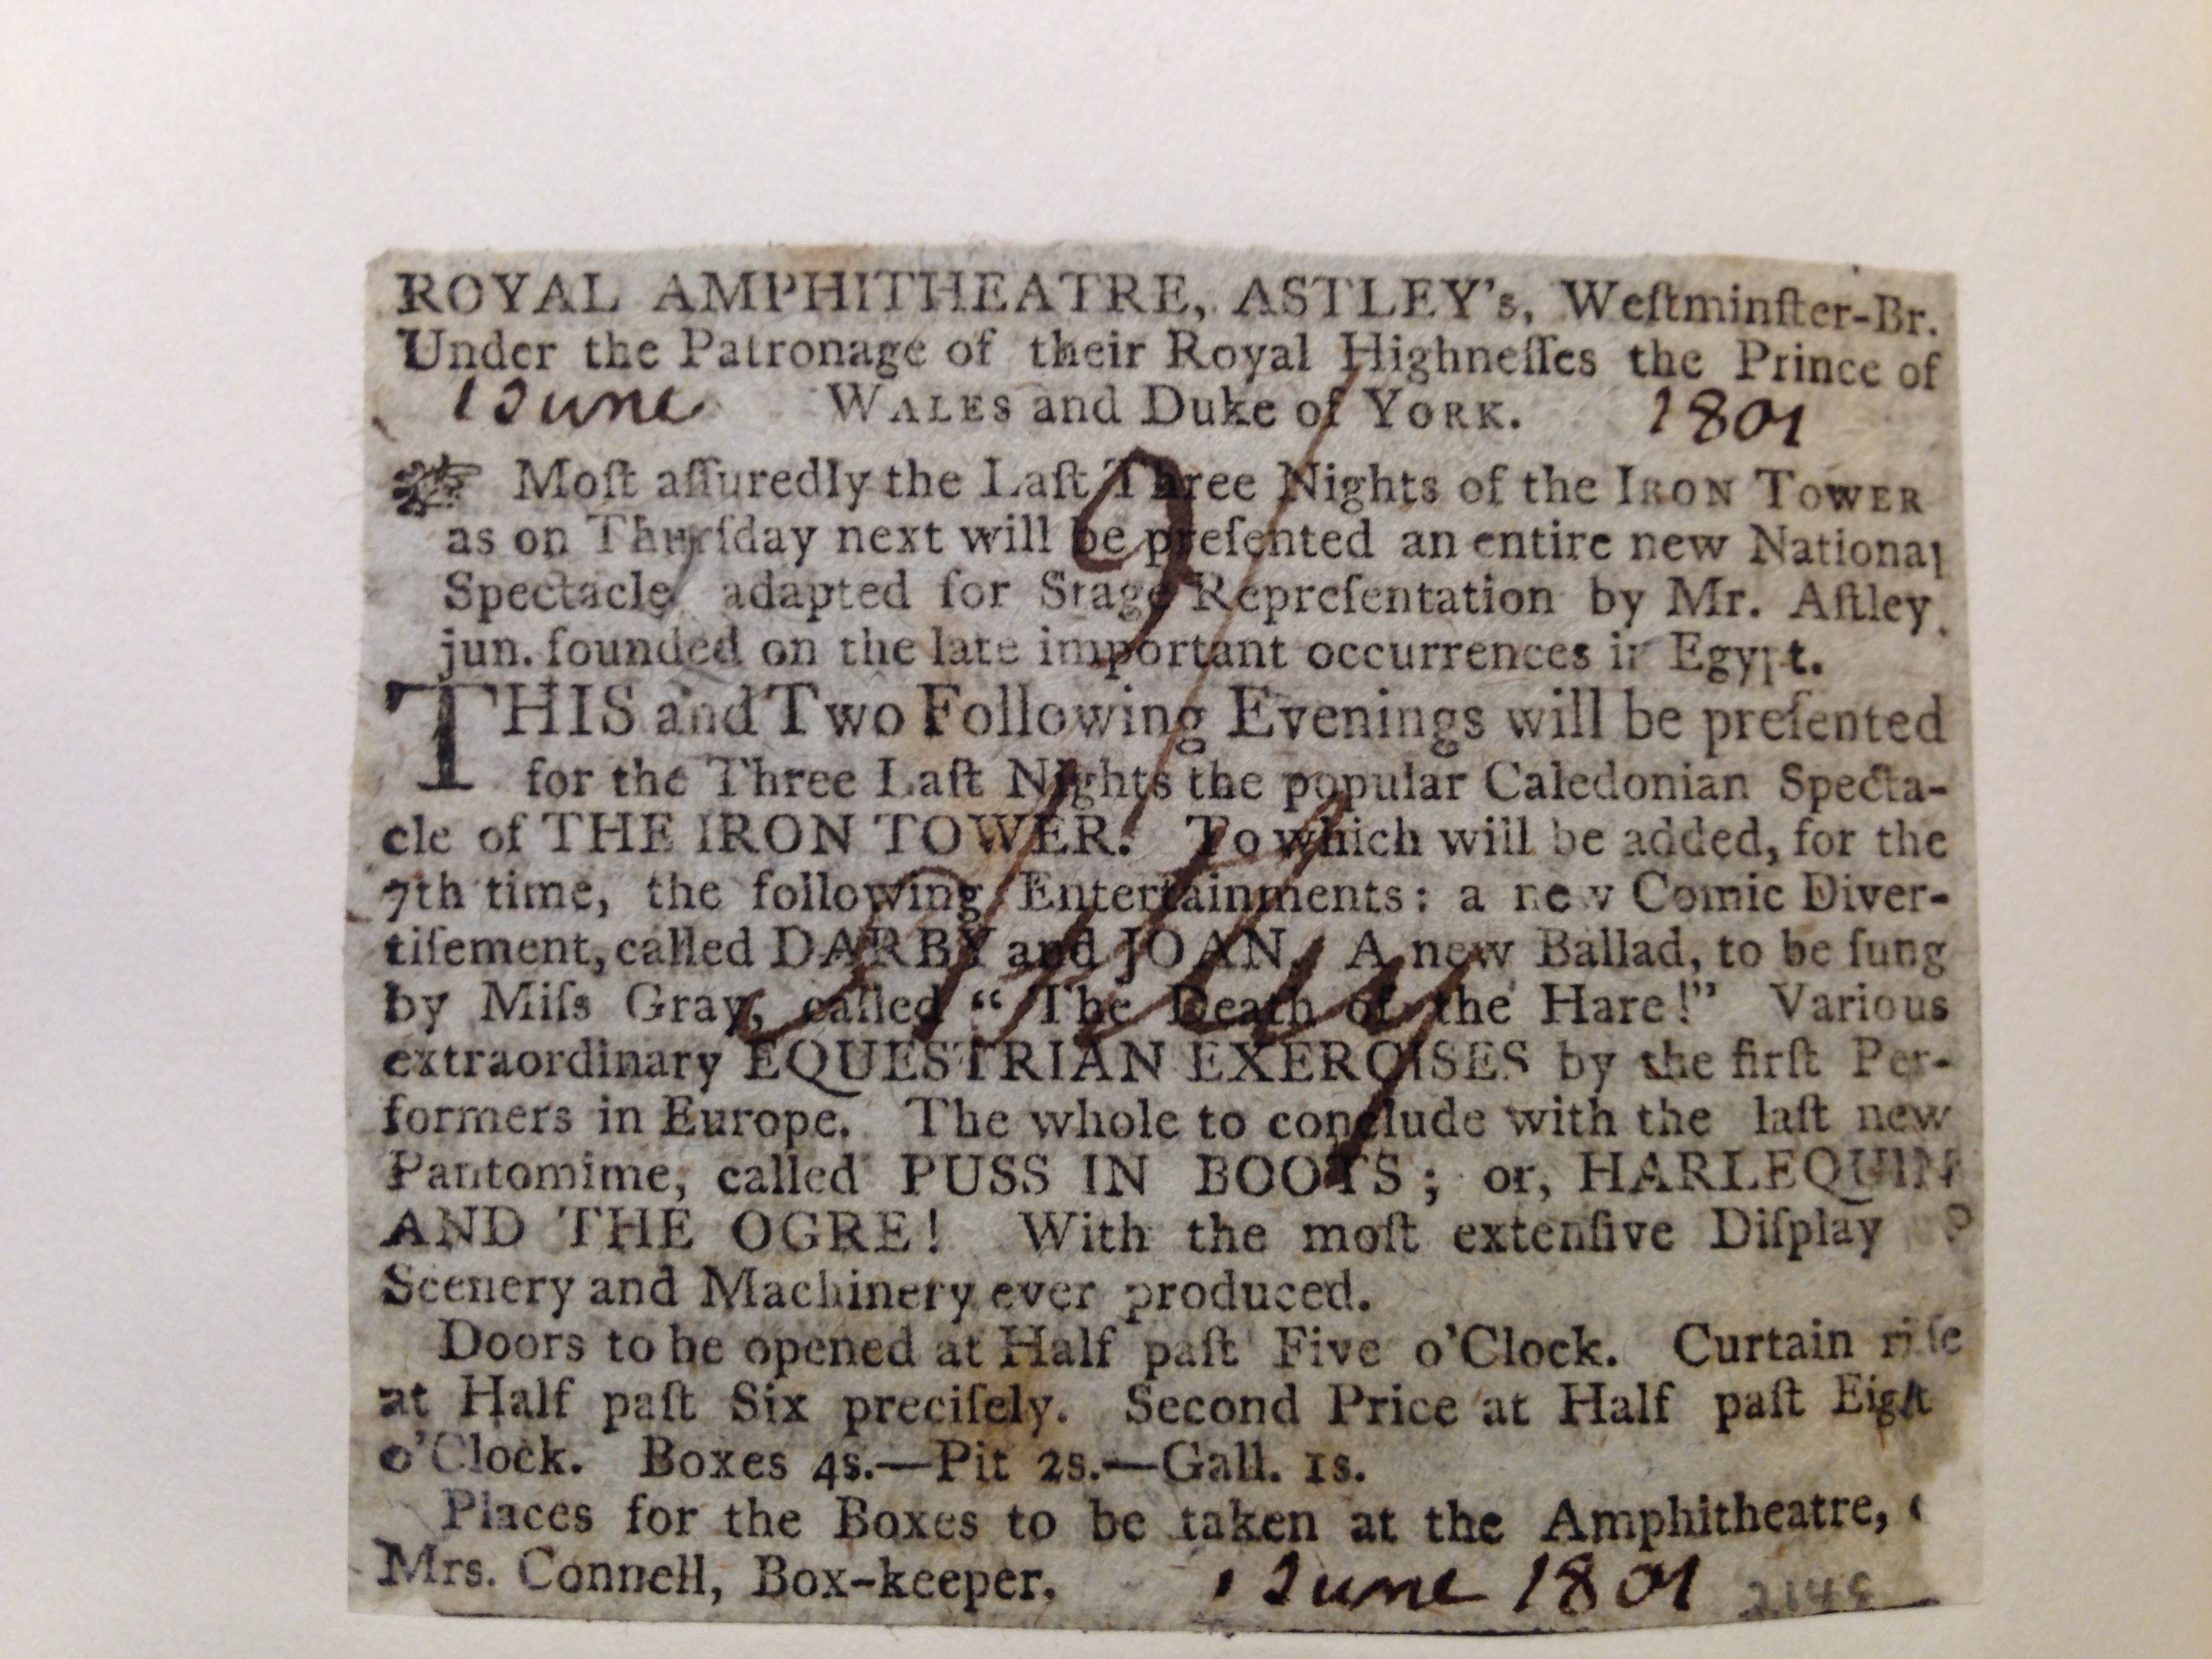 ROYAL AMPHITHEATRE, ASTLEY's, Weſtminſter-Br.
Under the Patronage of their Royal Highneſſes the Prince of
1 June WALES and Duke of YORK. 1801
☞ Moſt aſſuredly the Laſt Three Nights of the IRON TOWER
as on Thurſday next will be preſented an entire new National
Spectacle adapted for Stage Repreſentation by Mr. Aſtley,
jun. founded on the late important occurrences in Egypt.
THIS and Two Following Evenings will be preſented
for the Three Laſt Nights the popular Caledonian Specta-
cle of THE IRON TOWER. To which will be added, for the
7th time, the following Entertainments: a new Comic Diver-
tiſement, called DARBY and JOAN. A new Ballad, to be ſung
by Miſs Gray, called “ The Death of the Hare!” Various
extraordinary EQUESTRIAN EXERCISES by the firſt Per-
formers in Europe. The whole to conclude with the laſt new
Pantomime, called PUSS IN BOOTS; or, HARLEQUIN
AND THE OGRE! With the moſt extenſive Diſplay
Scenery and Machinery ever produced.
Doors to be opened at Half paſt Five o'Clock. Curtain riſe
at Half paſt Six preciſely. Second Price at Half paſt Eight
o'Clock. Boxes 4s.—Pit 2s.—Gall. 1s.
Places for the Boxes to be taken at the Amphitheatre,
Mrs. Connell, Box-keeper. 1 June 1801